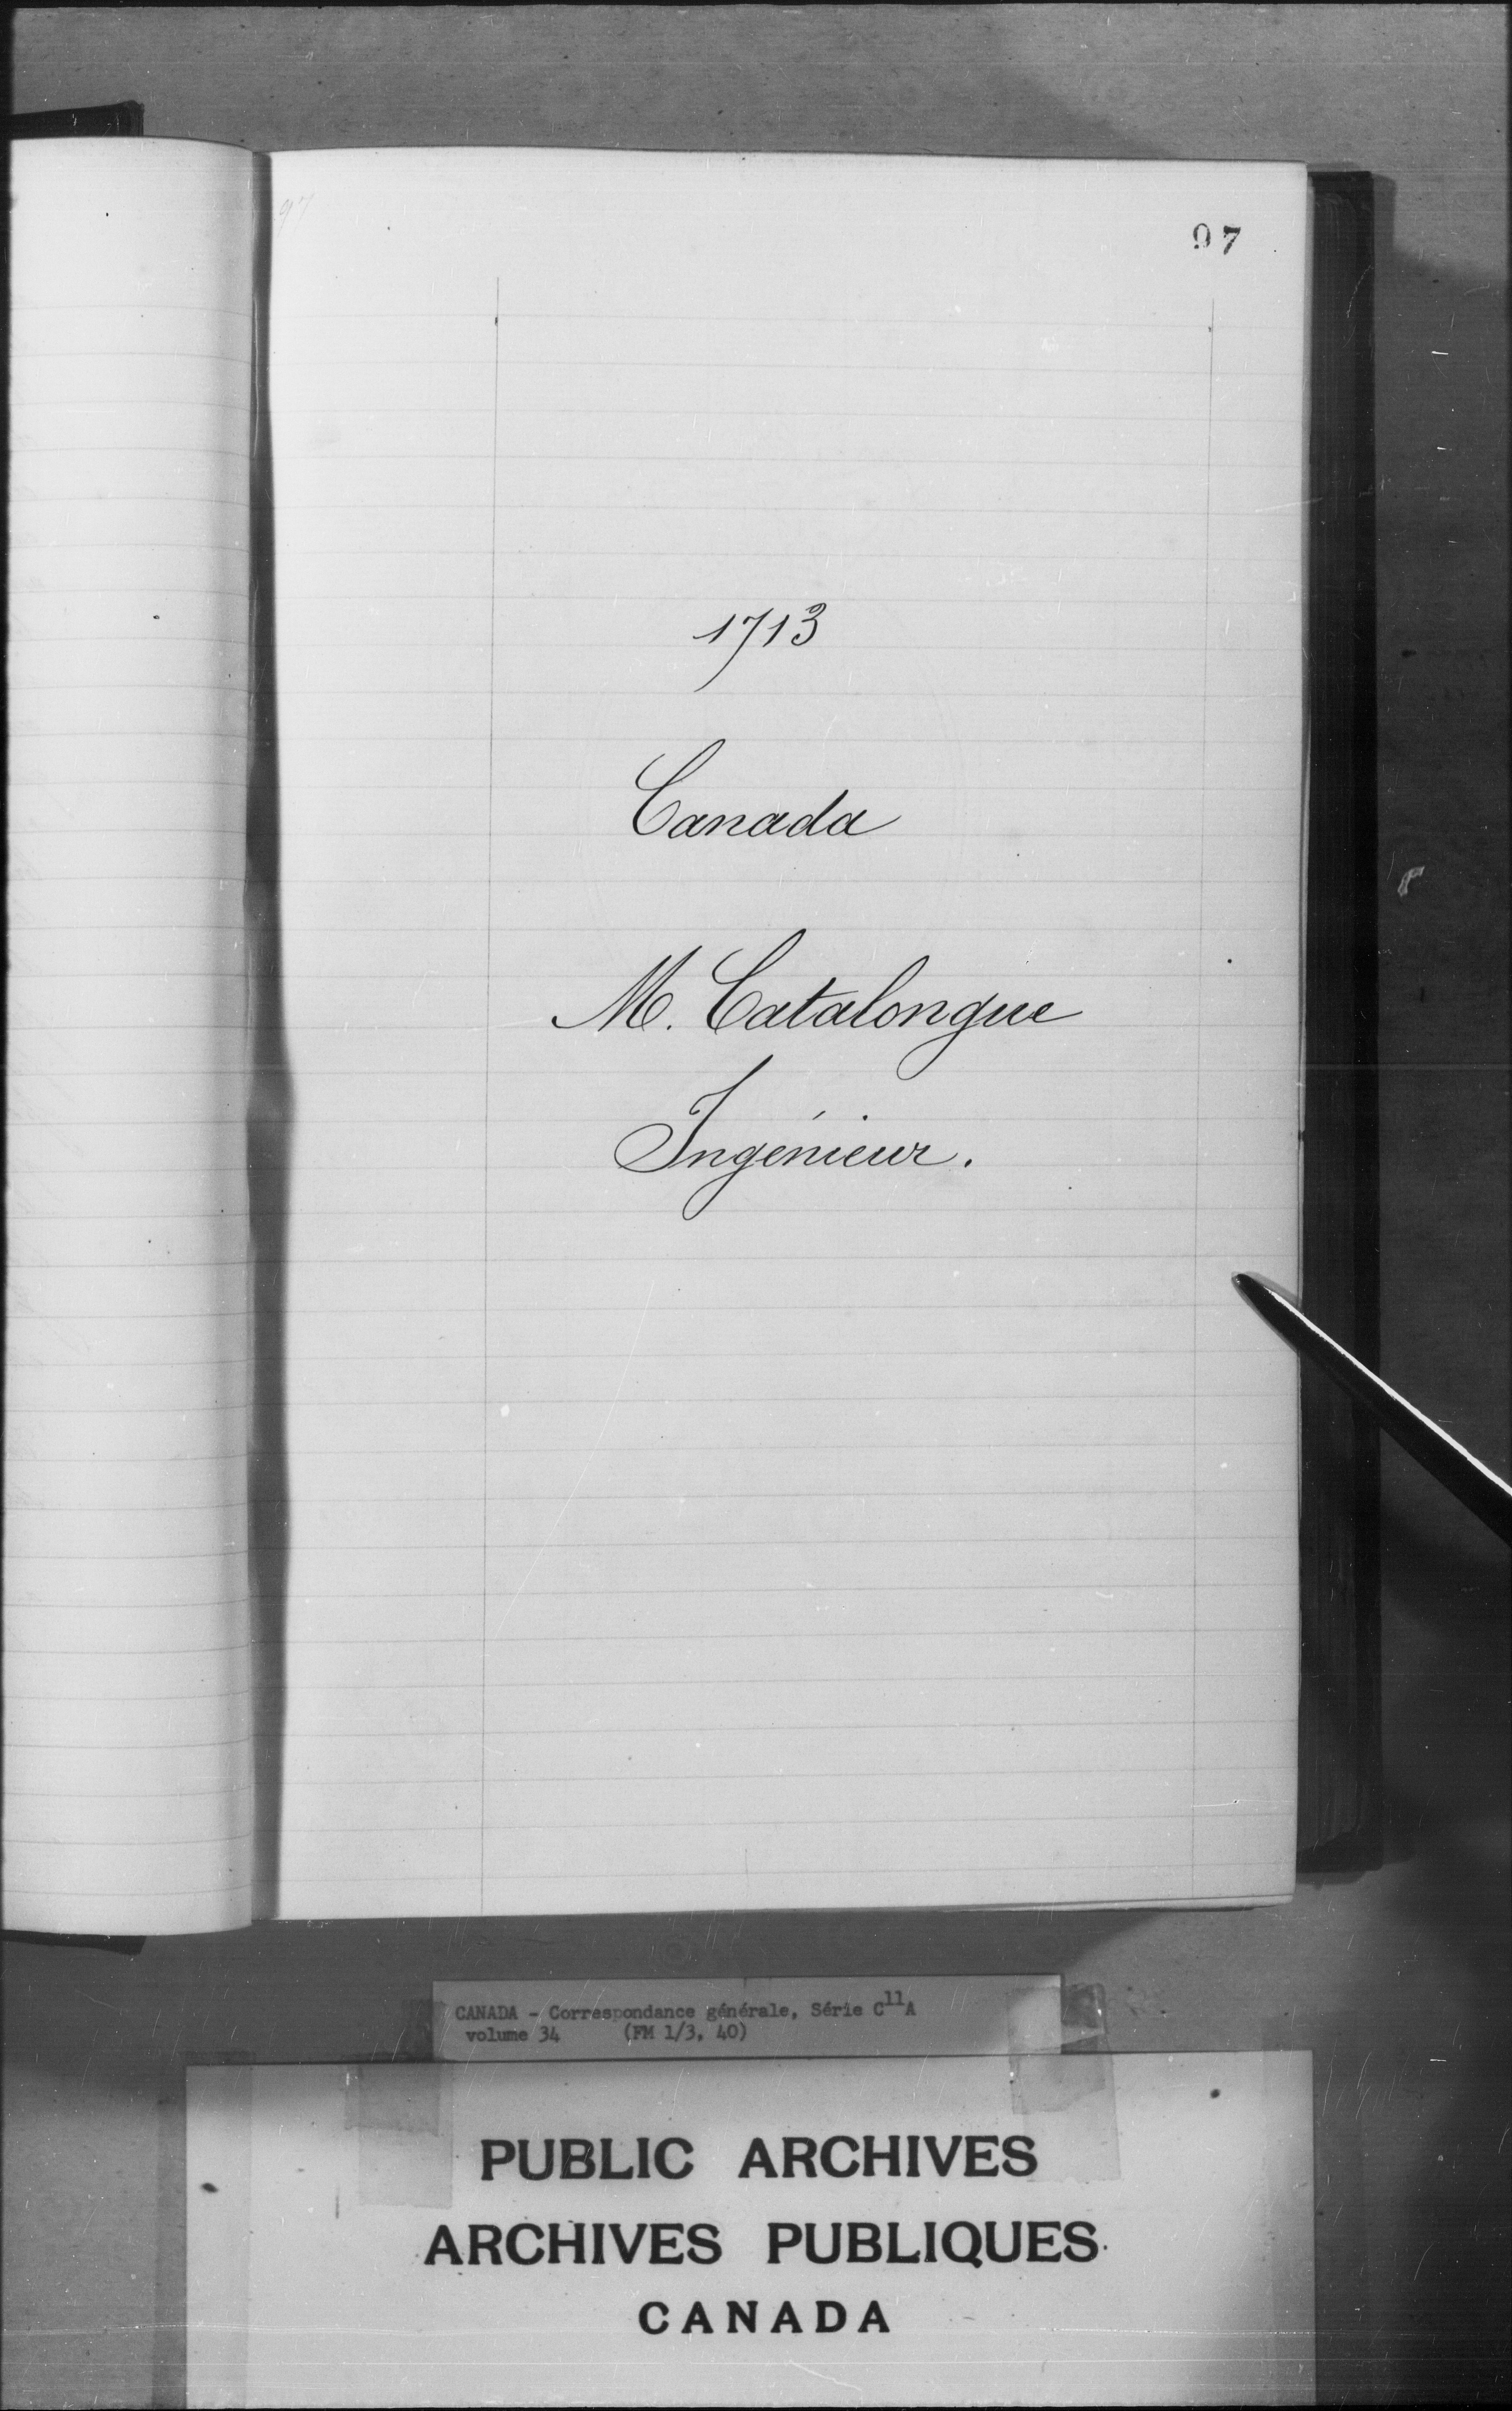 97
97
1713
Canada
M. Catalongue
Ingénieur.
CANADA - Correspondance générale, Série C11A
volume 34 (FM 1/3, 40)
PUBLIC ARCHIVES
ARCHIVES PUBLIQUES
CANADA